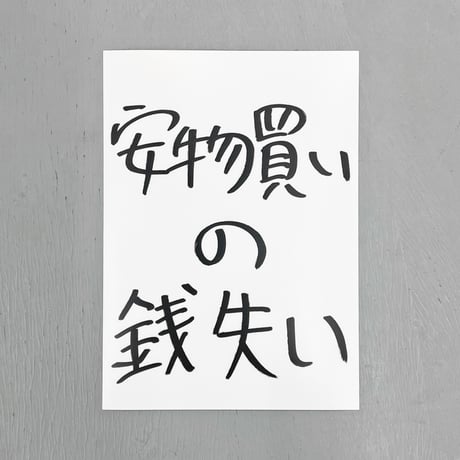 安物買い
の
銭失い